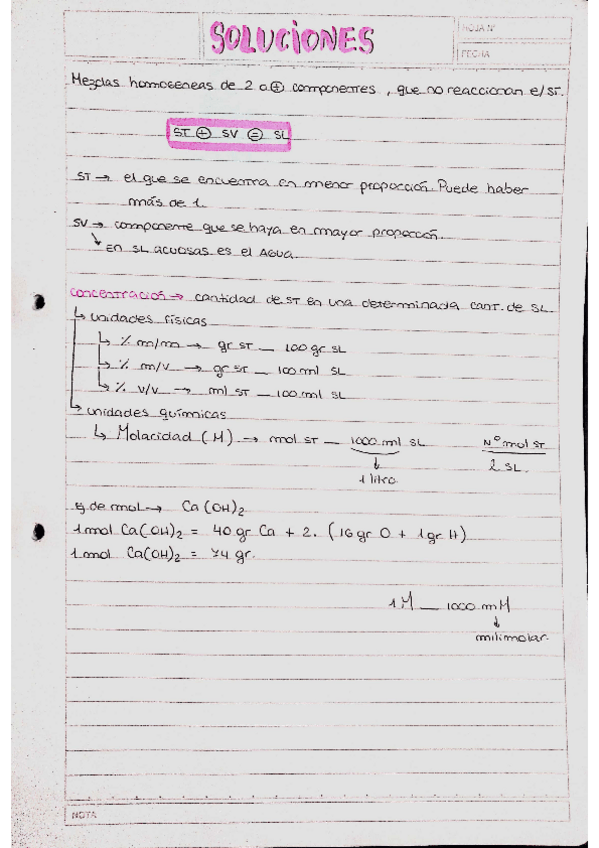 SOLUCIONES
HOJA Nº
FECHA
Mezclas homogeneas de 2 o ⊕ componentes, que no reaccionan e/ST.
ST ⊕ SV ⊜ SL
ST → el que se encuentra en menor proporción. Puede haber
más de 1.
SV → componente que se haya en mayor proporción.
↳ En SL acuosas es el AGUA.
concentración → cantidad de ST en una determinada cant. de SL.
↳ unidades físicas
↳ % m/m → gr ST — 100 gr SL
↳ % m/v → gr ST — 100 ml SL
↳ % v/v → ml ST — 100 ml SL
↳ unidades químicas
↳ Molaridad (M) → mol ST — 1000 ml SL
↓
1 litro.
Nº mol ST
2 SL.
ej de mol → Ca (OH)2
1 mol Ca(OH)2 = 40 gr Ca + 2. (16 gr O + 1 gr H)
1 mol Ca(OH)2 = 74 gr.
1 M — 1000 mM
↓
milimolar.
NOTA